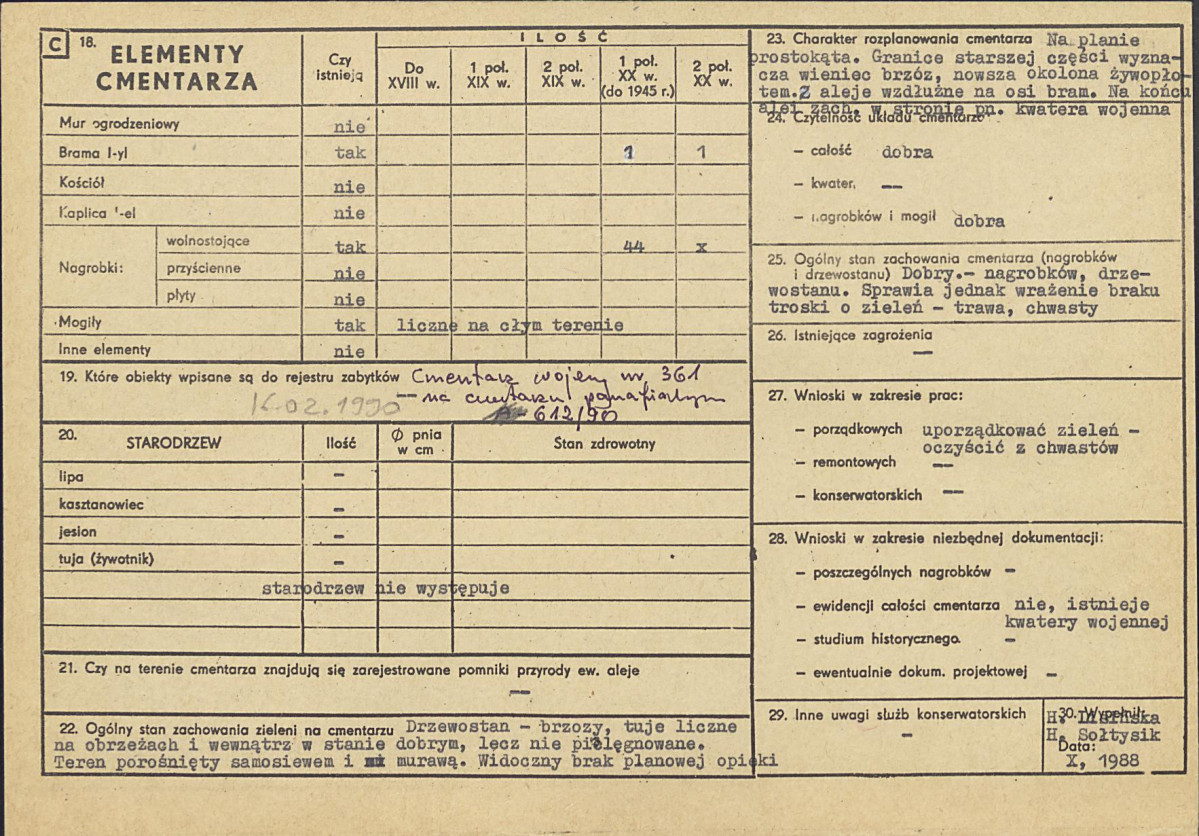 C 18. ELEMENTY CMENTARZA
Czy istnieją
ILOŚĆ
Do XVIII w.
1 poł. XIX w.
2 poł. XIX w.
1 poł. XX w. (do 1945 r.)
2 poł. XX w.
Mur ogrodzeniowy nie
Brama I-yl tak 1 1
Kościół nie
Kaplica '-el nie
Nagrobki:
wolnostojące tak 44 x
przyścienne nie
płyty nie
Mogiły tak liczne na cłym terenie
Inne elementy nie
19. Które obiekty wpisane są do rejestru zabytków Cmentarz wojenny nr 361
— na cmentarzu parafialnym
16.02.1990 A-612/90
20. STARODRZEW Ilość Ø pnia w cm Stan zdrowotny
lipa –
kasztanowiec –
jesion –
tuja (żywotnik) –
starodrzew nie występuje
21. Czy na terenie cmentarza znajdują się zarejestrowane pomniki przyrody ew. aleje
—
22. Ogólny stan zachowania zieleni na cmentarzu Drzewostan – brzozy, tuje liczne
na obrzeżach i wewnątrz w stanie dobrym, lecz nie pielęgnowane.
Teren porośnięty samosiewem i murawą. Widoczny brak planowej opieki
23. Charakter rozplanowania cmentarza Na planie
prostokąta. Granice starszej części wyzna-
cza wieniec brzóz, nowsza okolona żywopło-
tem. 2 aleje wzdłużne na osi bram. Na końcu
alei zach. w stronie pn. kwatera wojenna
24. Czytelność układu cmentarza
– całość dobra
– kwater, —
– nagrobków i mogił dobra
25. Ogólny stan zachowania cmentarza (nagrobków
i drzewostanu) Dobry.– nagrobków, drze-
wostanu. Sprawia jednak wrażenie braku
troski o zieleń – trawa, chwasty
26. Istniejące zagrożenia
—
27. Wnioski w zakresie prac:
– porządkowych uporządkować zieleń –
oczyścić z chwastów
– remontowych —
– konserwatorskich —
28. Wnioski w zakresie niezbędnej dokumentacji:
– poszczególnych nagrobków –
– ewidencji całości cmentarza nie, istnieje
kwatery wojennej
– studium historycznego –
– ewentualnie dokum. projektowej –
29. Inne uwagi służb konserwatorskich
–
30. Wypełnił:
H.
H. Sołtysik
Data:
X, 1988